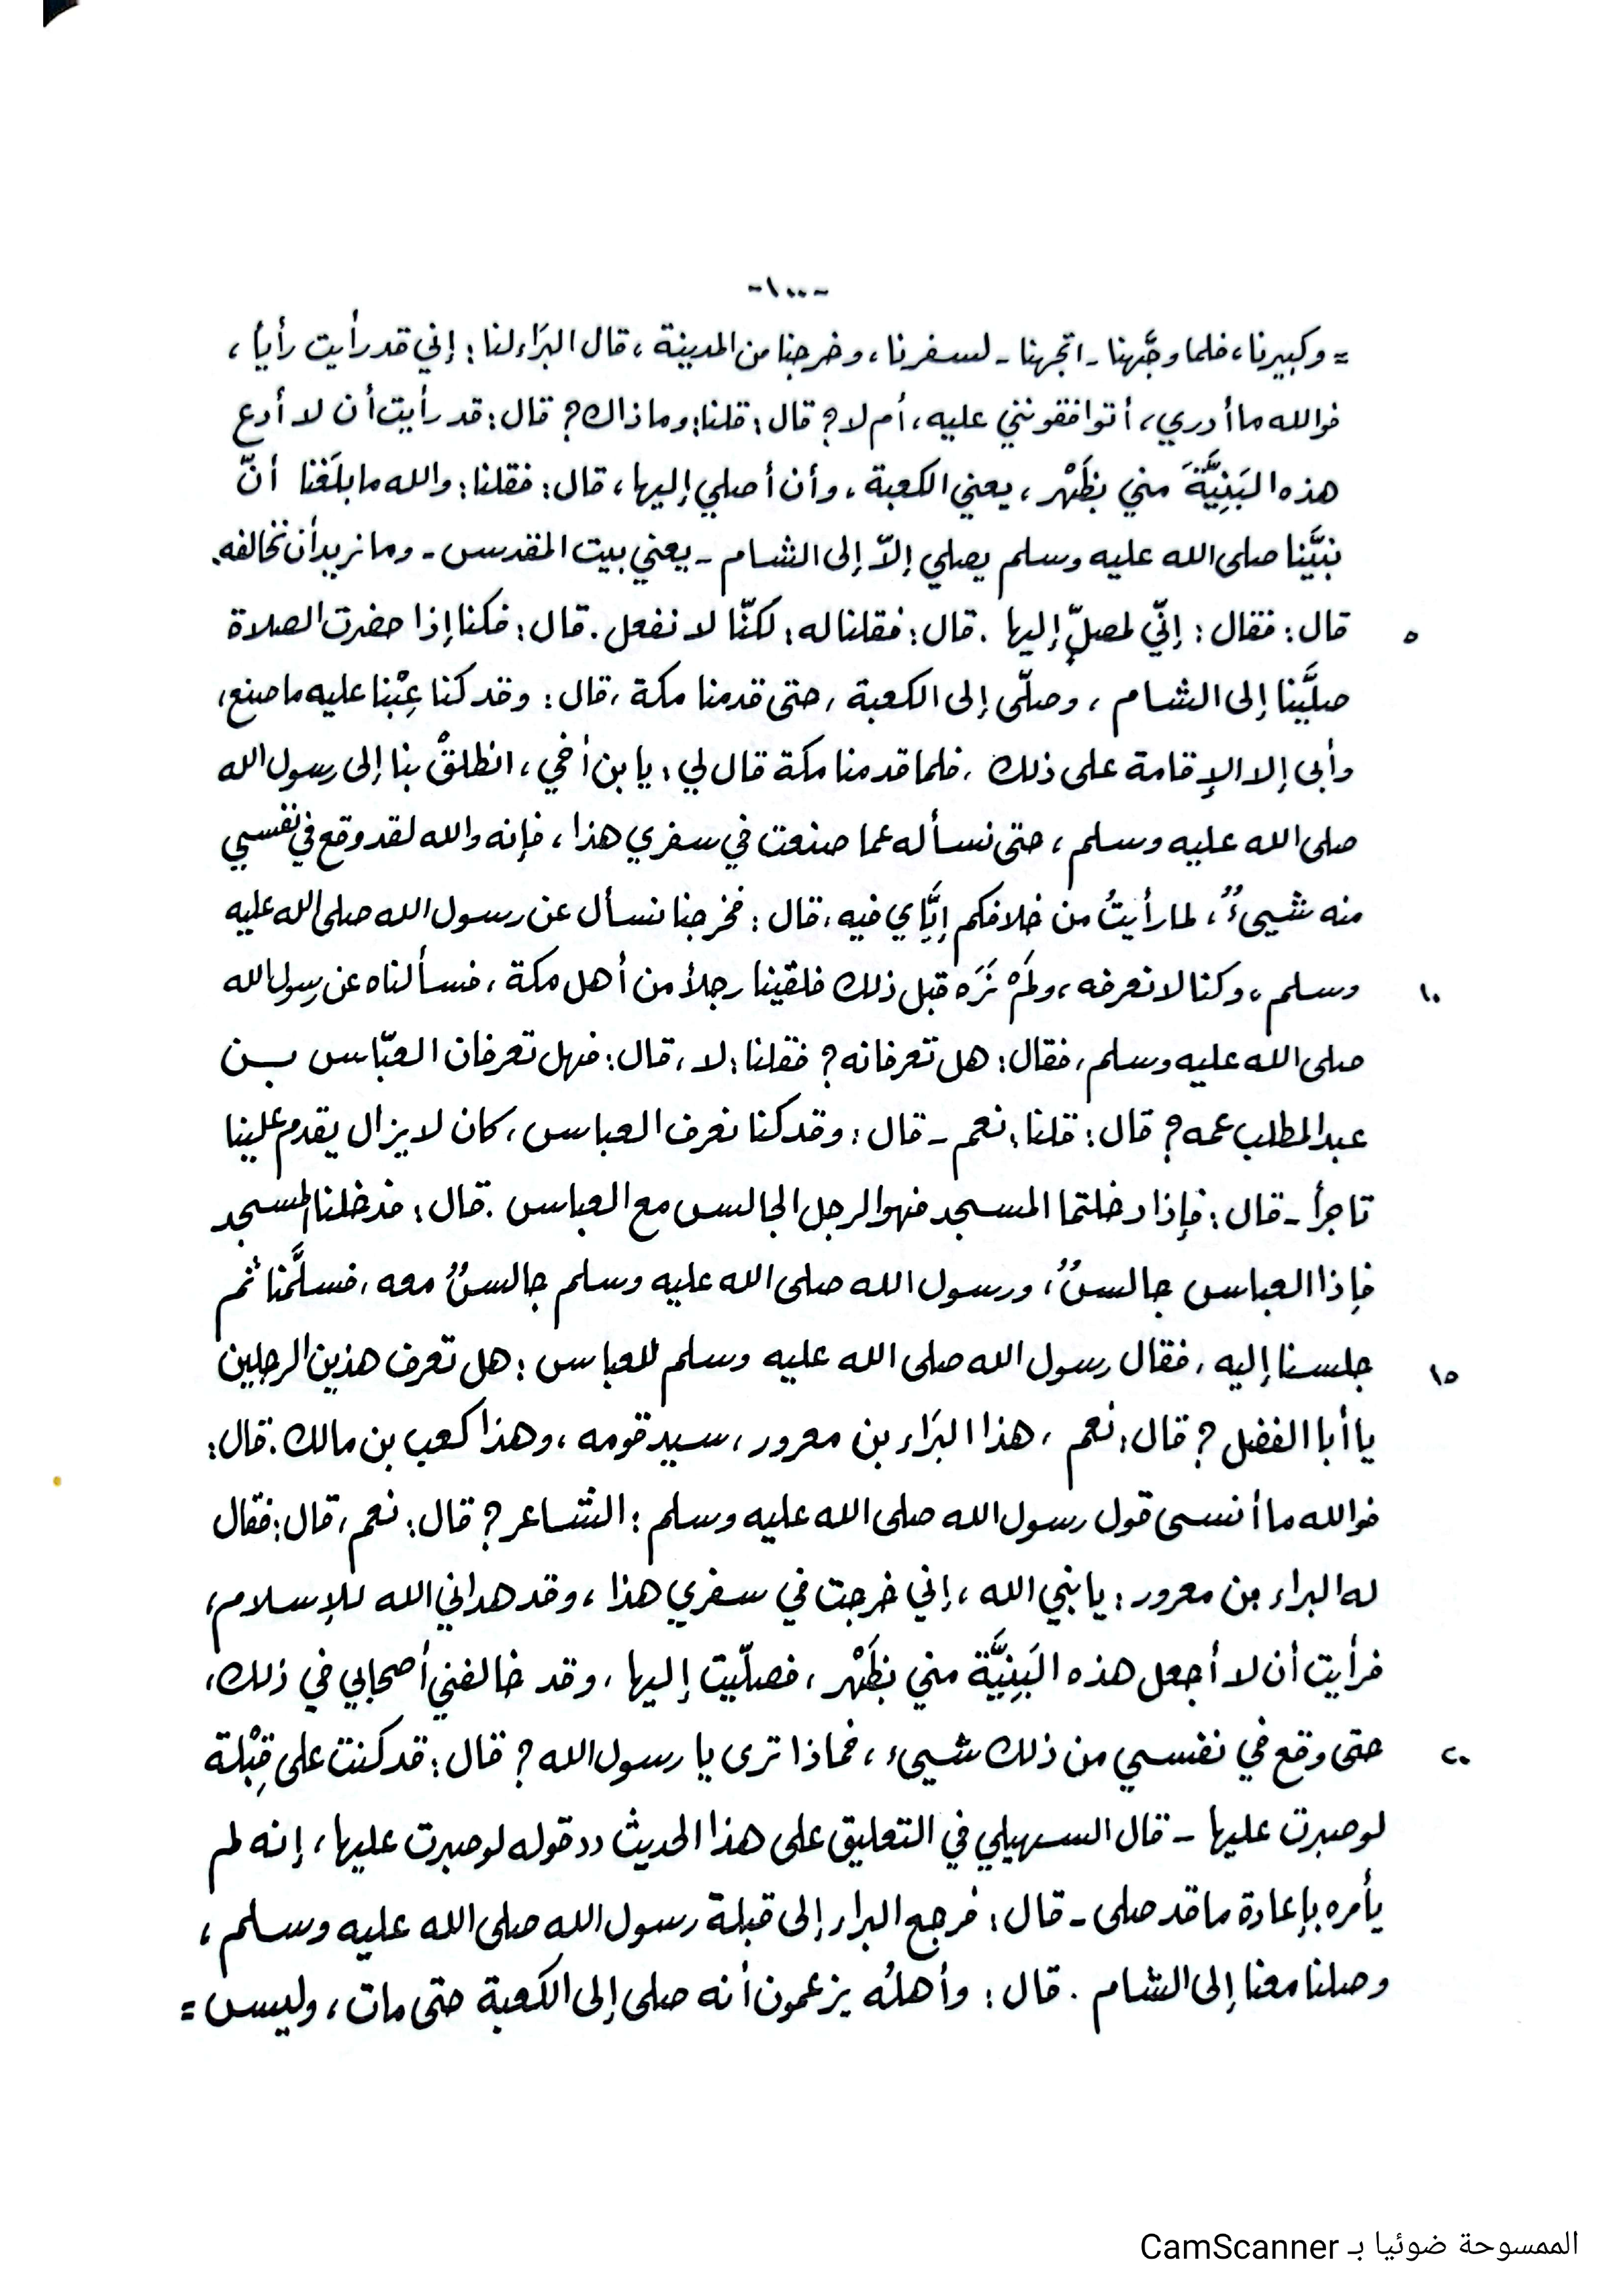 -١٠٠-
= وكبيرنا، فلما وجَّهنا - اتجهنا - لسفرنا، وخرجنا من المدينة، قال البَراء لنا: إني قد رأيت رأياً،
فوالله ما أدري، أتوافقونني عليه، أم لا؟ قال: قلنا: وما ذاك؟ قال: قد رأيت أن لا أدع
هذه البَنِيَّةَ مني بظَهْر، يعني الكعبة، وأن أصلي إليها، قال: فقلنا: والله ما بلَغَنا أنّ
نبيَّنا صلى الله عليه وسلم يصلي إلاّ إلى الشام - يعني بيت المقدس - وما نريد أن نخالفه.
قال: فقال: إنّي لمصلٍّ إليها. قال: فقلنا له: لكنّا لا نفعل. قال: فكنا إذا حضرت الصلاة
٥
صلَّينا إلى الشام، وصلّى إلى الكعبة، حتى قدمنا مكة، قال: وقد كنا عِبْنا عليه ما صنع،
وأبى إلا الإقامة على ذلك، فلما قدمنا مكة قال لي: يا بن أخي، انطلقْ بنا إلى رسول الله
صلى الله عليه وسلم، حتى نسأله عما صنعت في سفري هذا، فإنه والله لقد وقع في نفسي
منه شيىءٌ، لما رأيتُ من خلافكم إيَّاي فيه، قال: فخرجنا نسأل عن رسول الله صلى الله عليه
وسلم، وكنا لا نعرفه، ولَمْ نَرَه قبل ذلك فلقينا رجلاً من أهل مكة، فسألناه عن رسول الله
١٠
صلى الله عليه وسلم، فقال: هل تعرفانه؟ فقلنا: لا، قال: فهل تعرفان العبّاس بن
عبد المطلب عمه؟ قال: قلنا: نعم - قال: وقد كنا نعرف العباس، كان لا يزال يقدم علينا
تاجراً - قال: فإذا دخلتما المسجد فهو الرجل الجالس مع العباس. قال: فدخلنا المسجد
فإذا العباس جالسٌ، ورسول الله صلى الله عليه وسلم جالسٌ معه، فسلَّمنا ثم
جلسنا إليه، فقال رسول الله صلى الله عليه وسلم للعباس: هل تعرف هذين الرجلين
١٥
يا أبا الفضل؟ قال: نعم، هذا البَراء بن معرور، سيد قومه، وهذا كعب بن مالك. قال:
فوالله ما أنسى قول رسول الله صلى الله عليه وسلم: الشاعر؟ قال: نعم، قال: فقال
له البراء بن معرور: يا نبي الله، إني خرجت في سفري هذا، وقد هداني الله للإسلام،
فرأيت أن لا أجعل هذه البَنِيَّة مني بظَهْر، فصلّيت إليها، وقد خالفني أصحابي في ذلك،
حتى وقع في نفسي من ذلك شيىء، فماذا ترى يا رسول الله؟ قال: قد كنت على قِبْلة
٢٠
لو صبرت عليها - قال السهيلي في التعليق على هذا الحديث «قوله لو صبرت عليها، إنه لم
يأمره بإعادة ما قد صلى - قال: فرجع البراء إلى قبلة رسول الله صلى الله عليه وسلم،
وصلنا معنا إلى الشام. قال: وأهلُه يزعمون أنه صلى إلى الكَعبة حتى مات، وليس =
الممسوحة ضوئيا بـ CamScanner